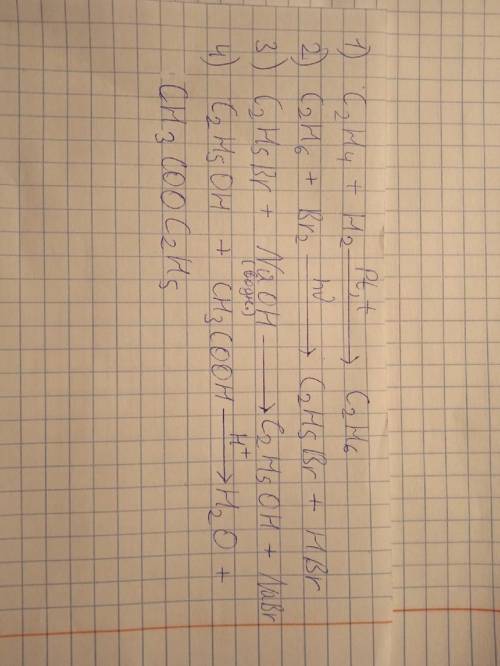 1) C₂H₄ + H₂ —Pt, t→ C₂H₆
2) C₂H₆ + Br₂ —hν→ C₂H₅Br + HBr
3) C₂H₅Br + NaOH (водн.) → C₂H₅OH + NaBr
4) C₂H₅OH + CH₃COOH —H⁺→ H₂O +
CH₃COOC₂H₅